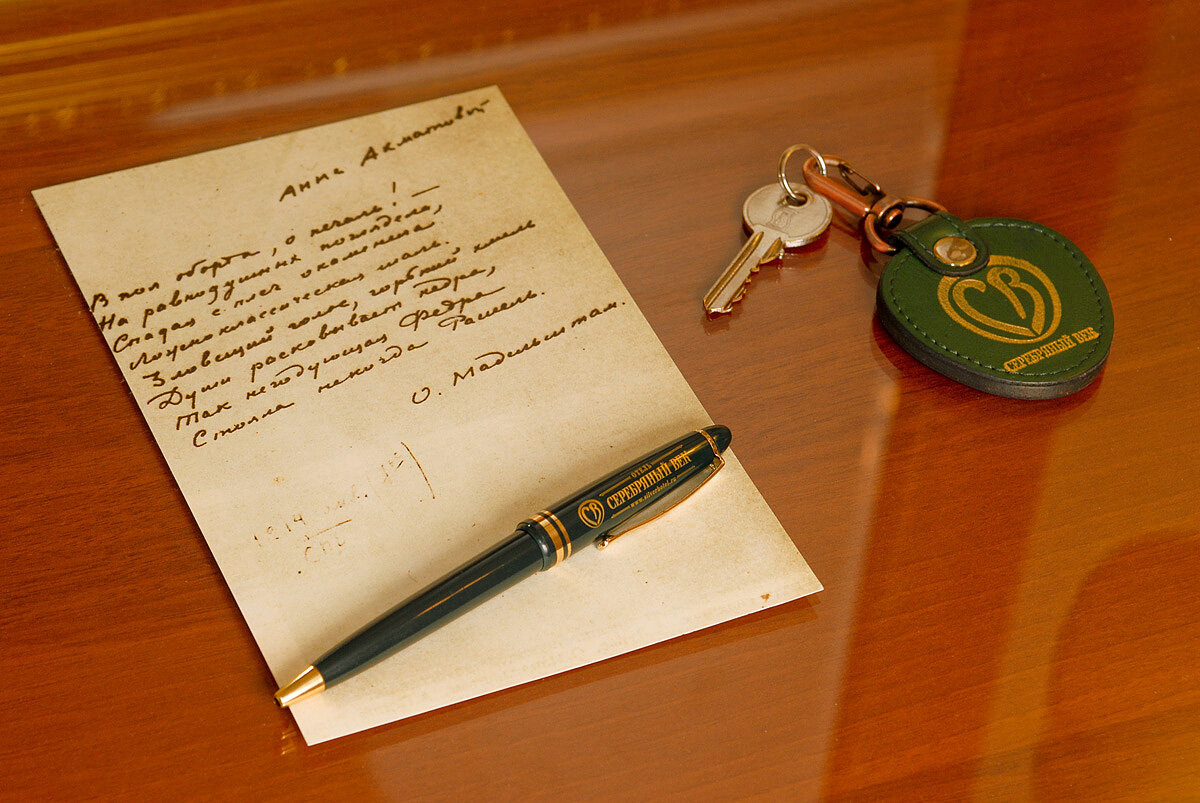 Анна Ахматовой
В пол оборта, о печаль! —
На равнодушных поглядела,
Спадая с плеч окаменела
Ложноклассическая шаль.
Зловещий голос, горький хмель
Души расковывает недра,
Так негодующая Федра
Стояла некогда Рашель.
О. Мадельштам.
1914
СПБ
ОТЕЛЬ
СЕРЕБРЯНЫЙ ВЕК
www.silverhotel.ru
СВ
СВ
СЕРЕБРЯНЫЙ ВЕК